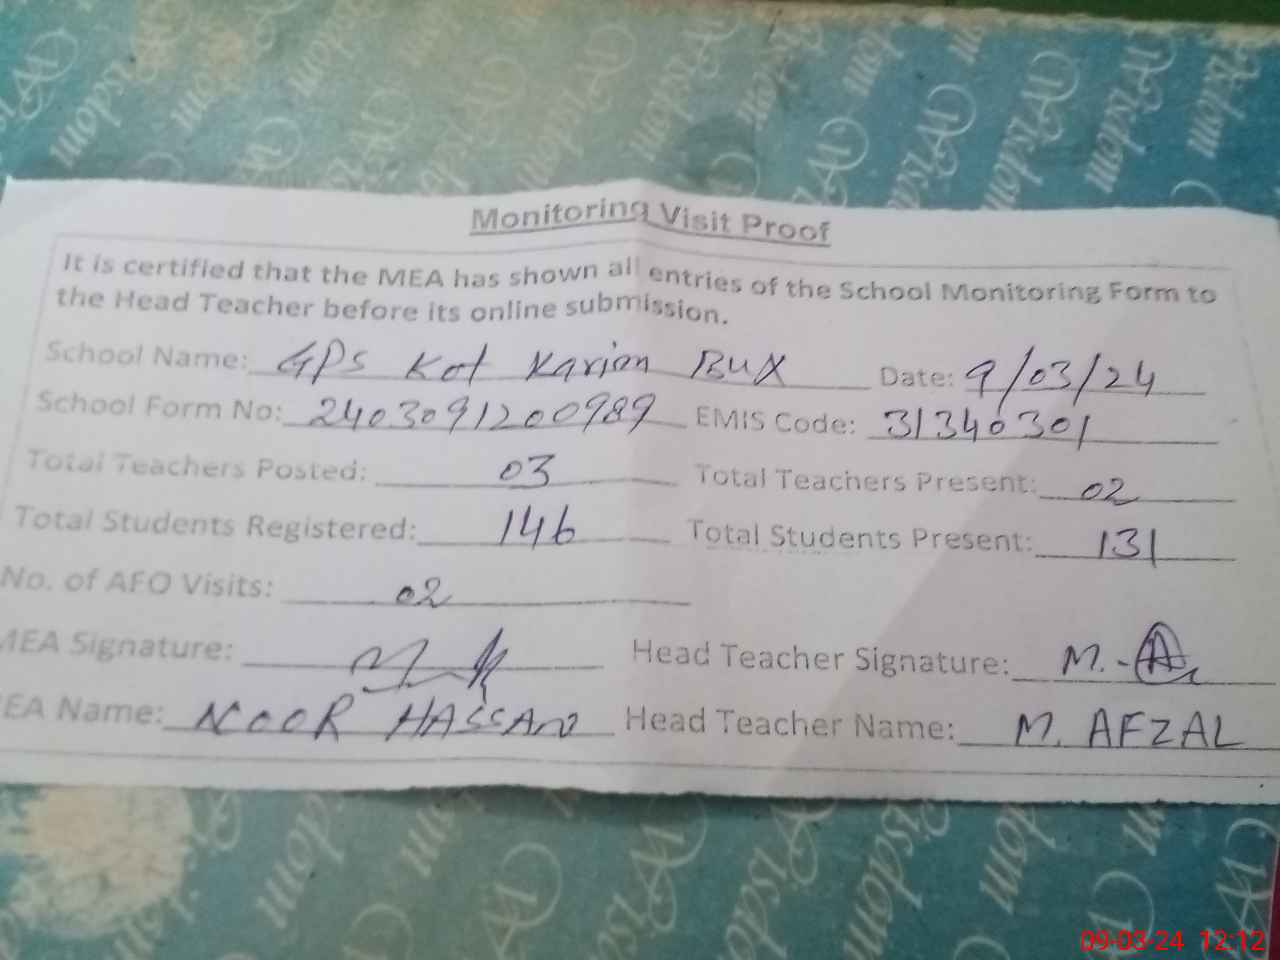 Monitoring Visit Proof
It is certified that the MEA has shown all entries of the School Monitoring Form to
the Head Teacher before its online submission.
School Name: GPS Kot Karim Bux Date: 9/03/24
School Form No: 2403091200989 EMIS Code: 31340301
Total Teachers Posted: 03 Total Teachers Present: 02
Total Students Registered: 146 Total Students Present: 131
No. of AFO Visits: 02
MEA Signature: Head Teacher Signature: M.
EA Name: NOOR HASSAN Head Teacher Name: M. AFZAL
09-03-24 12:12